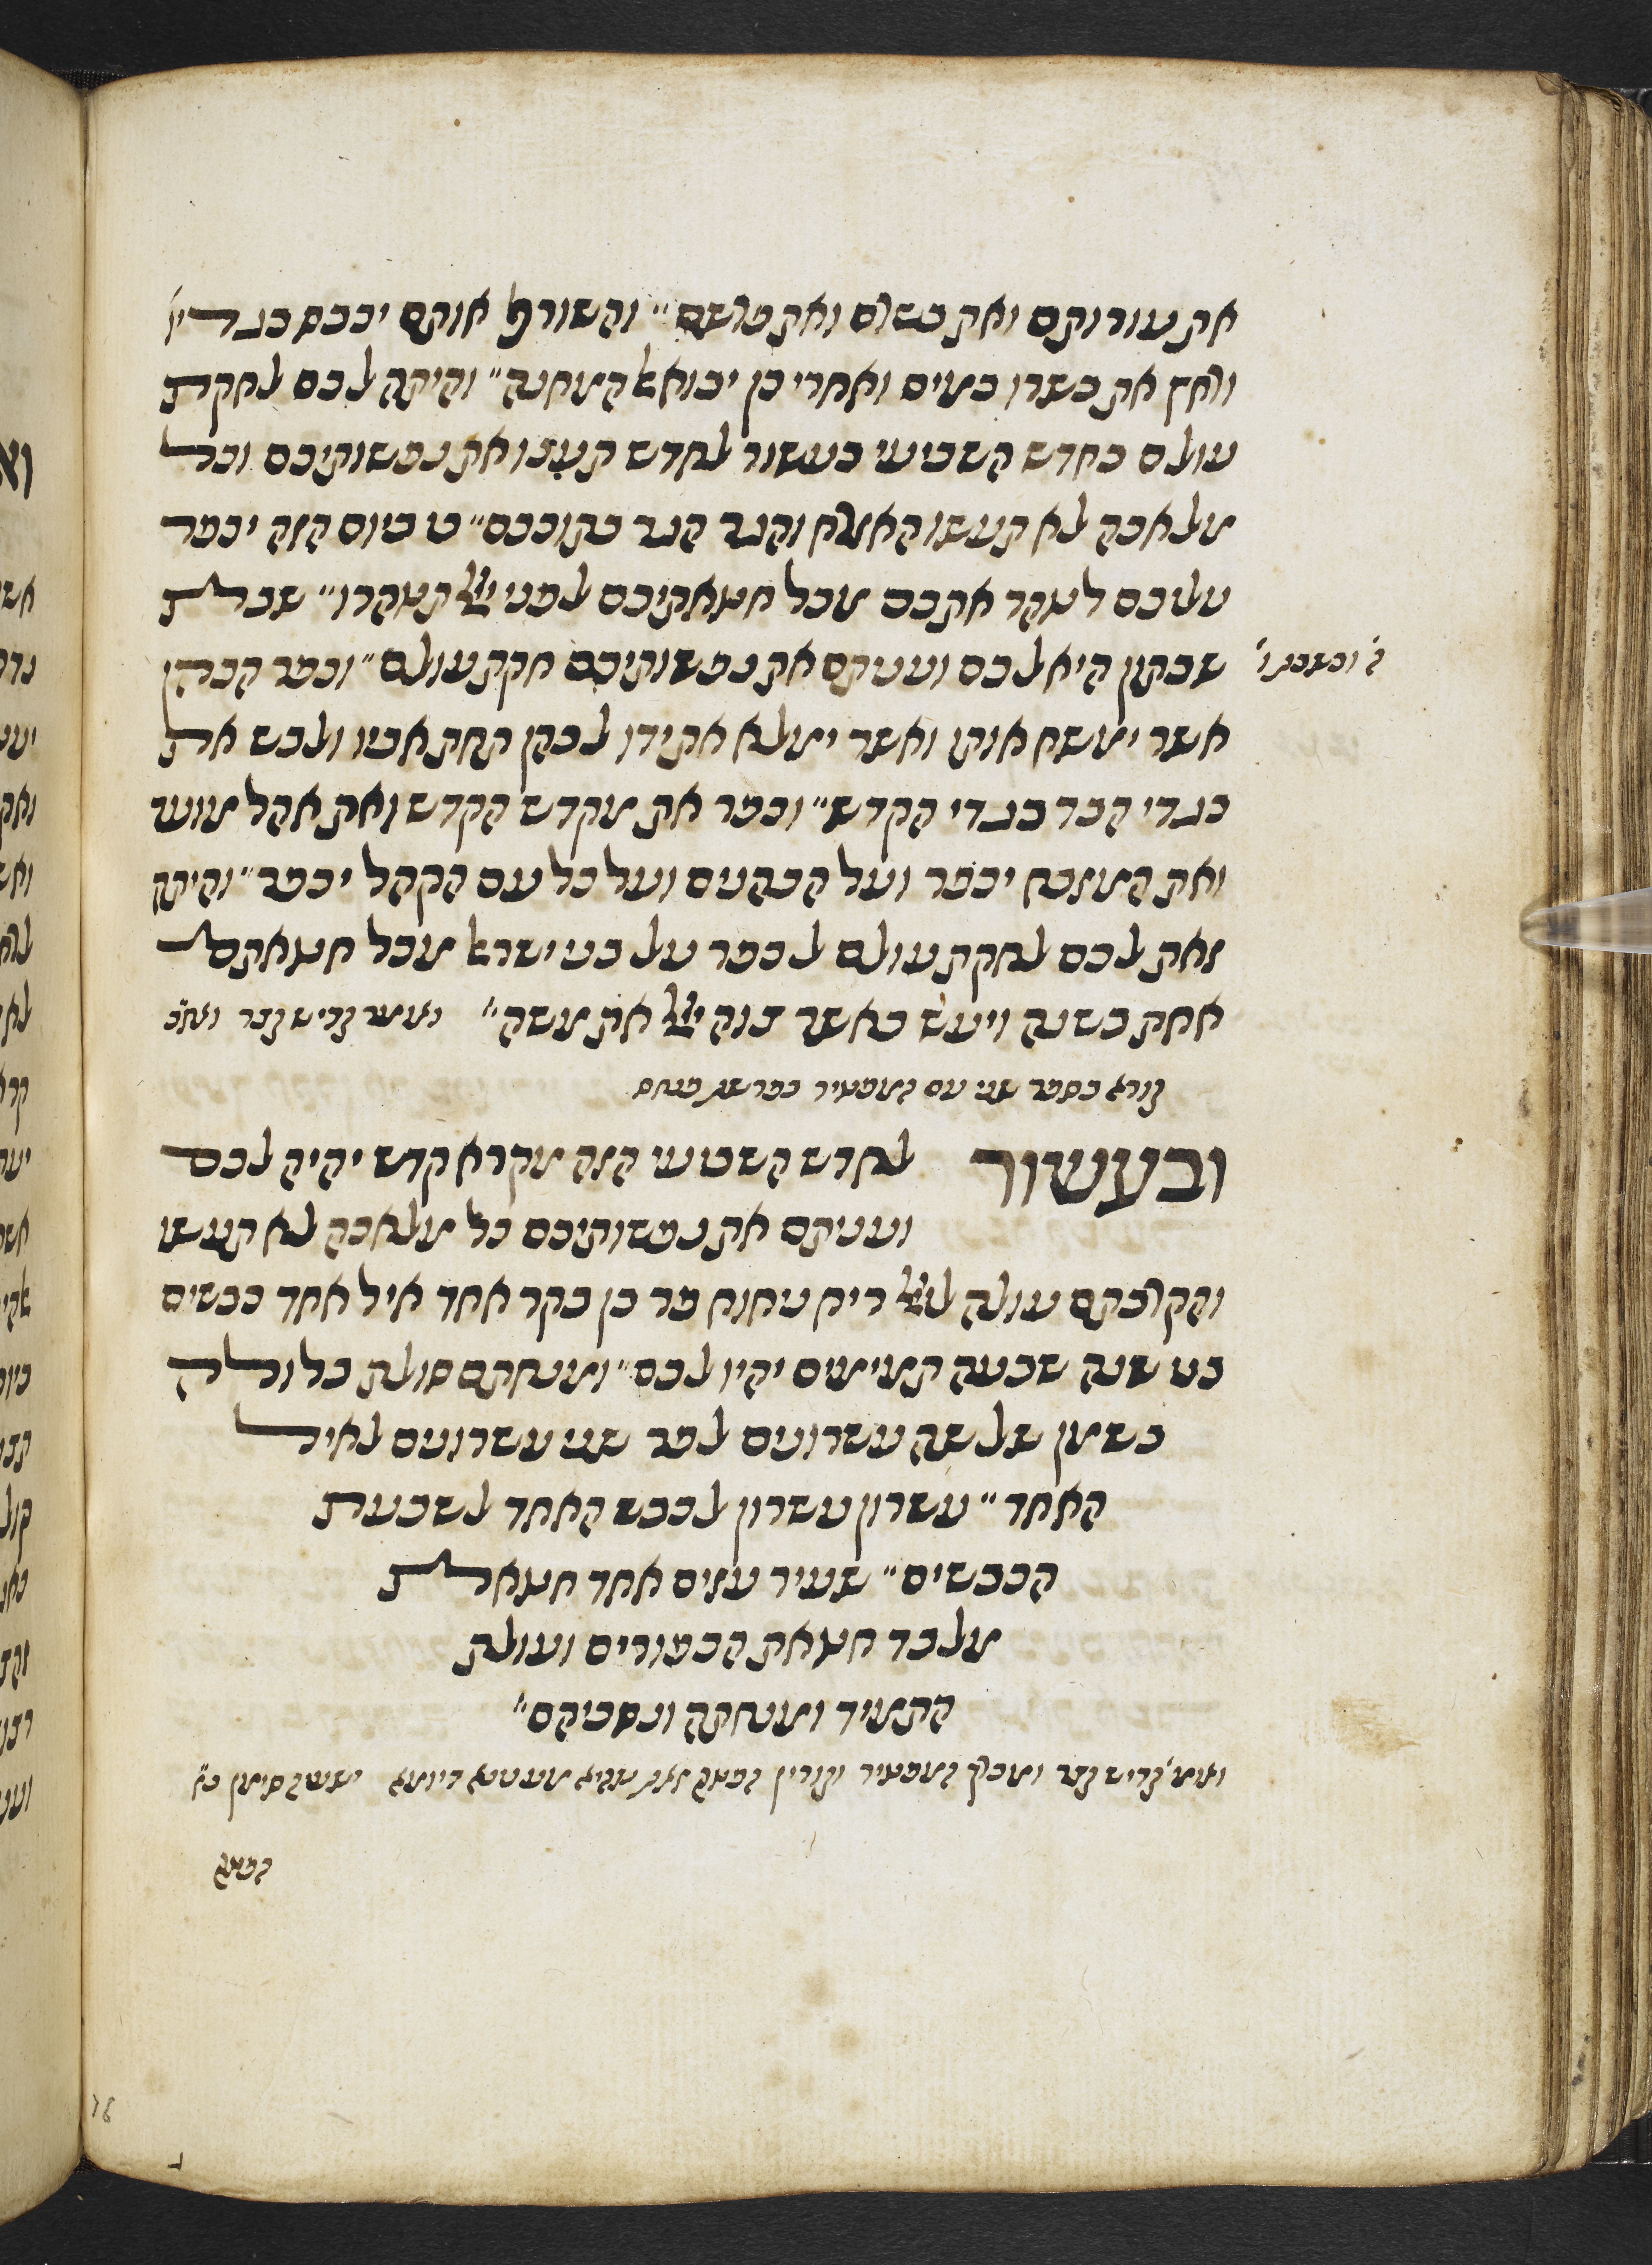 את עורותם ואת בשרם ואת פרשם״ והשורף אותם יכבס בגדיו
ורחץ את בשרו במים ואחרי כן יבוא אל המחנה״ והיתה לכם לחקת
עולם בחדש השביעי בעשור לחדש תענו את נפשותיכם וכל
מלאכה לא תעשו האזרח והגר הגר בתוככם״ כי ביום הזה יכפר
עליכם לטהר אתכם מכל חטאתיכם לפני ייי תטהרו״ שבת
שבתון היא לכם ועניתם את נפשותיכם חקת עולם״ וכפר הכהן
אשר ימשח אותו ואשר ימלא את ידו לכהן תחת אביו ולבש את
בגדי הבד בגדי הקדש״ וכפר את מקדש הקדש ואת אהל מועד
ואת המזבח יכפר ועל הכהנים ועל כל עם הקהל יכפר״ והיתה
זאת לכם לחקת עולם לכפר על בני ישראל מכל חטאתם
אחת בשנה ויעש כאשר צוה ייי את משה״ ואומר קדיש קצר ואח״כ
קורא בספר שני עם המפטיר בפרשת פנחס
ובעשור לחדש השביעי הזה מקרא קדש יהיה לכם
ועניתם את נפשותיכם כל מלאכה לא תעשו
והקרבתם עולה לייי ריח ניחוח פר בן בקר אחד איל אחד כבשים
בני שנה שבעה תמימים יהיו לכם״ ומנחתם סולת בלולה
בשמן שלשה עשרונים לפר שני עשרונים לאיל
האחד״ עשרון עשרון לכבש האחד לשבעת
הכבשים״ שעיר עזים אחד חטאת
מלבד חטאת הכפורים ועולת
התמיד ומנחתה ונסכיהם״
ואומ׳ קדיש קצר ומברך המפטיר וקורין הפטרה זאת
הפטרה